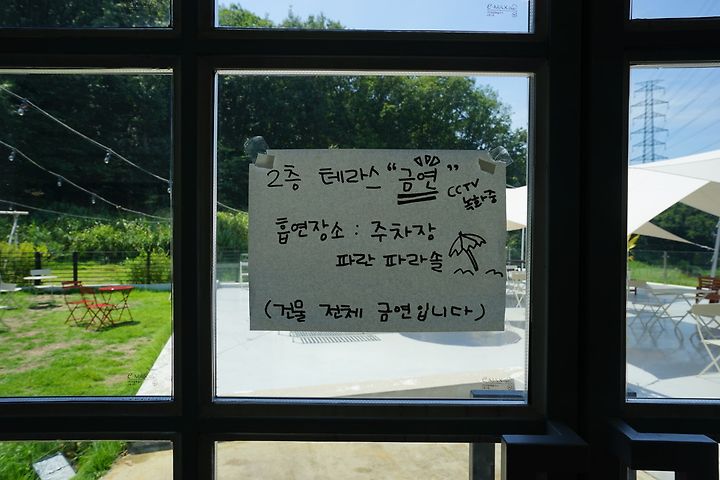 2층 테라스 "금연"
CCTV
녹화중
흡연장소 : 주차장
파란 파라솔
(건물 전체 금연입니다)